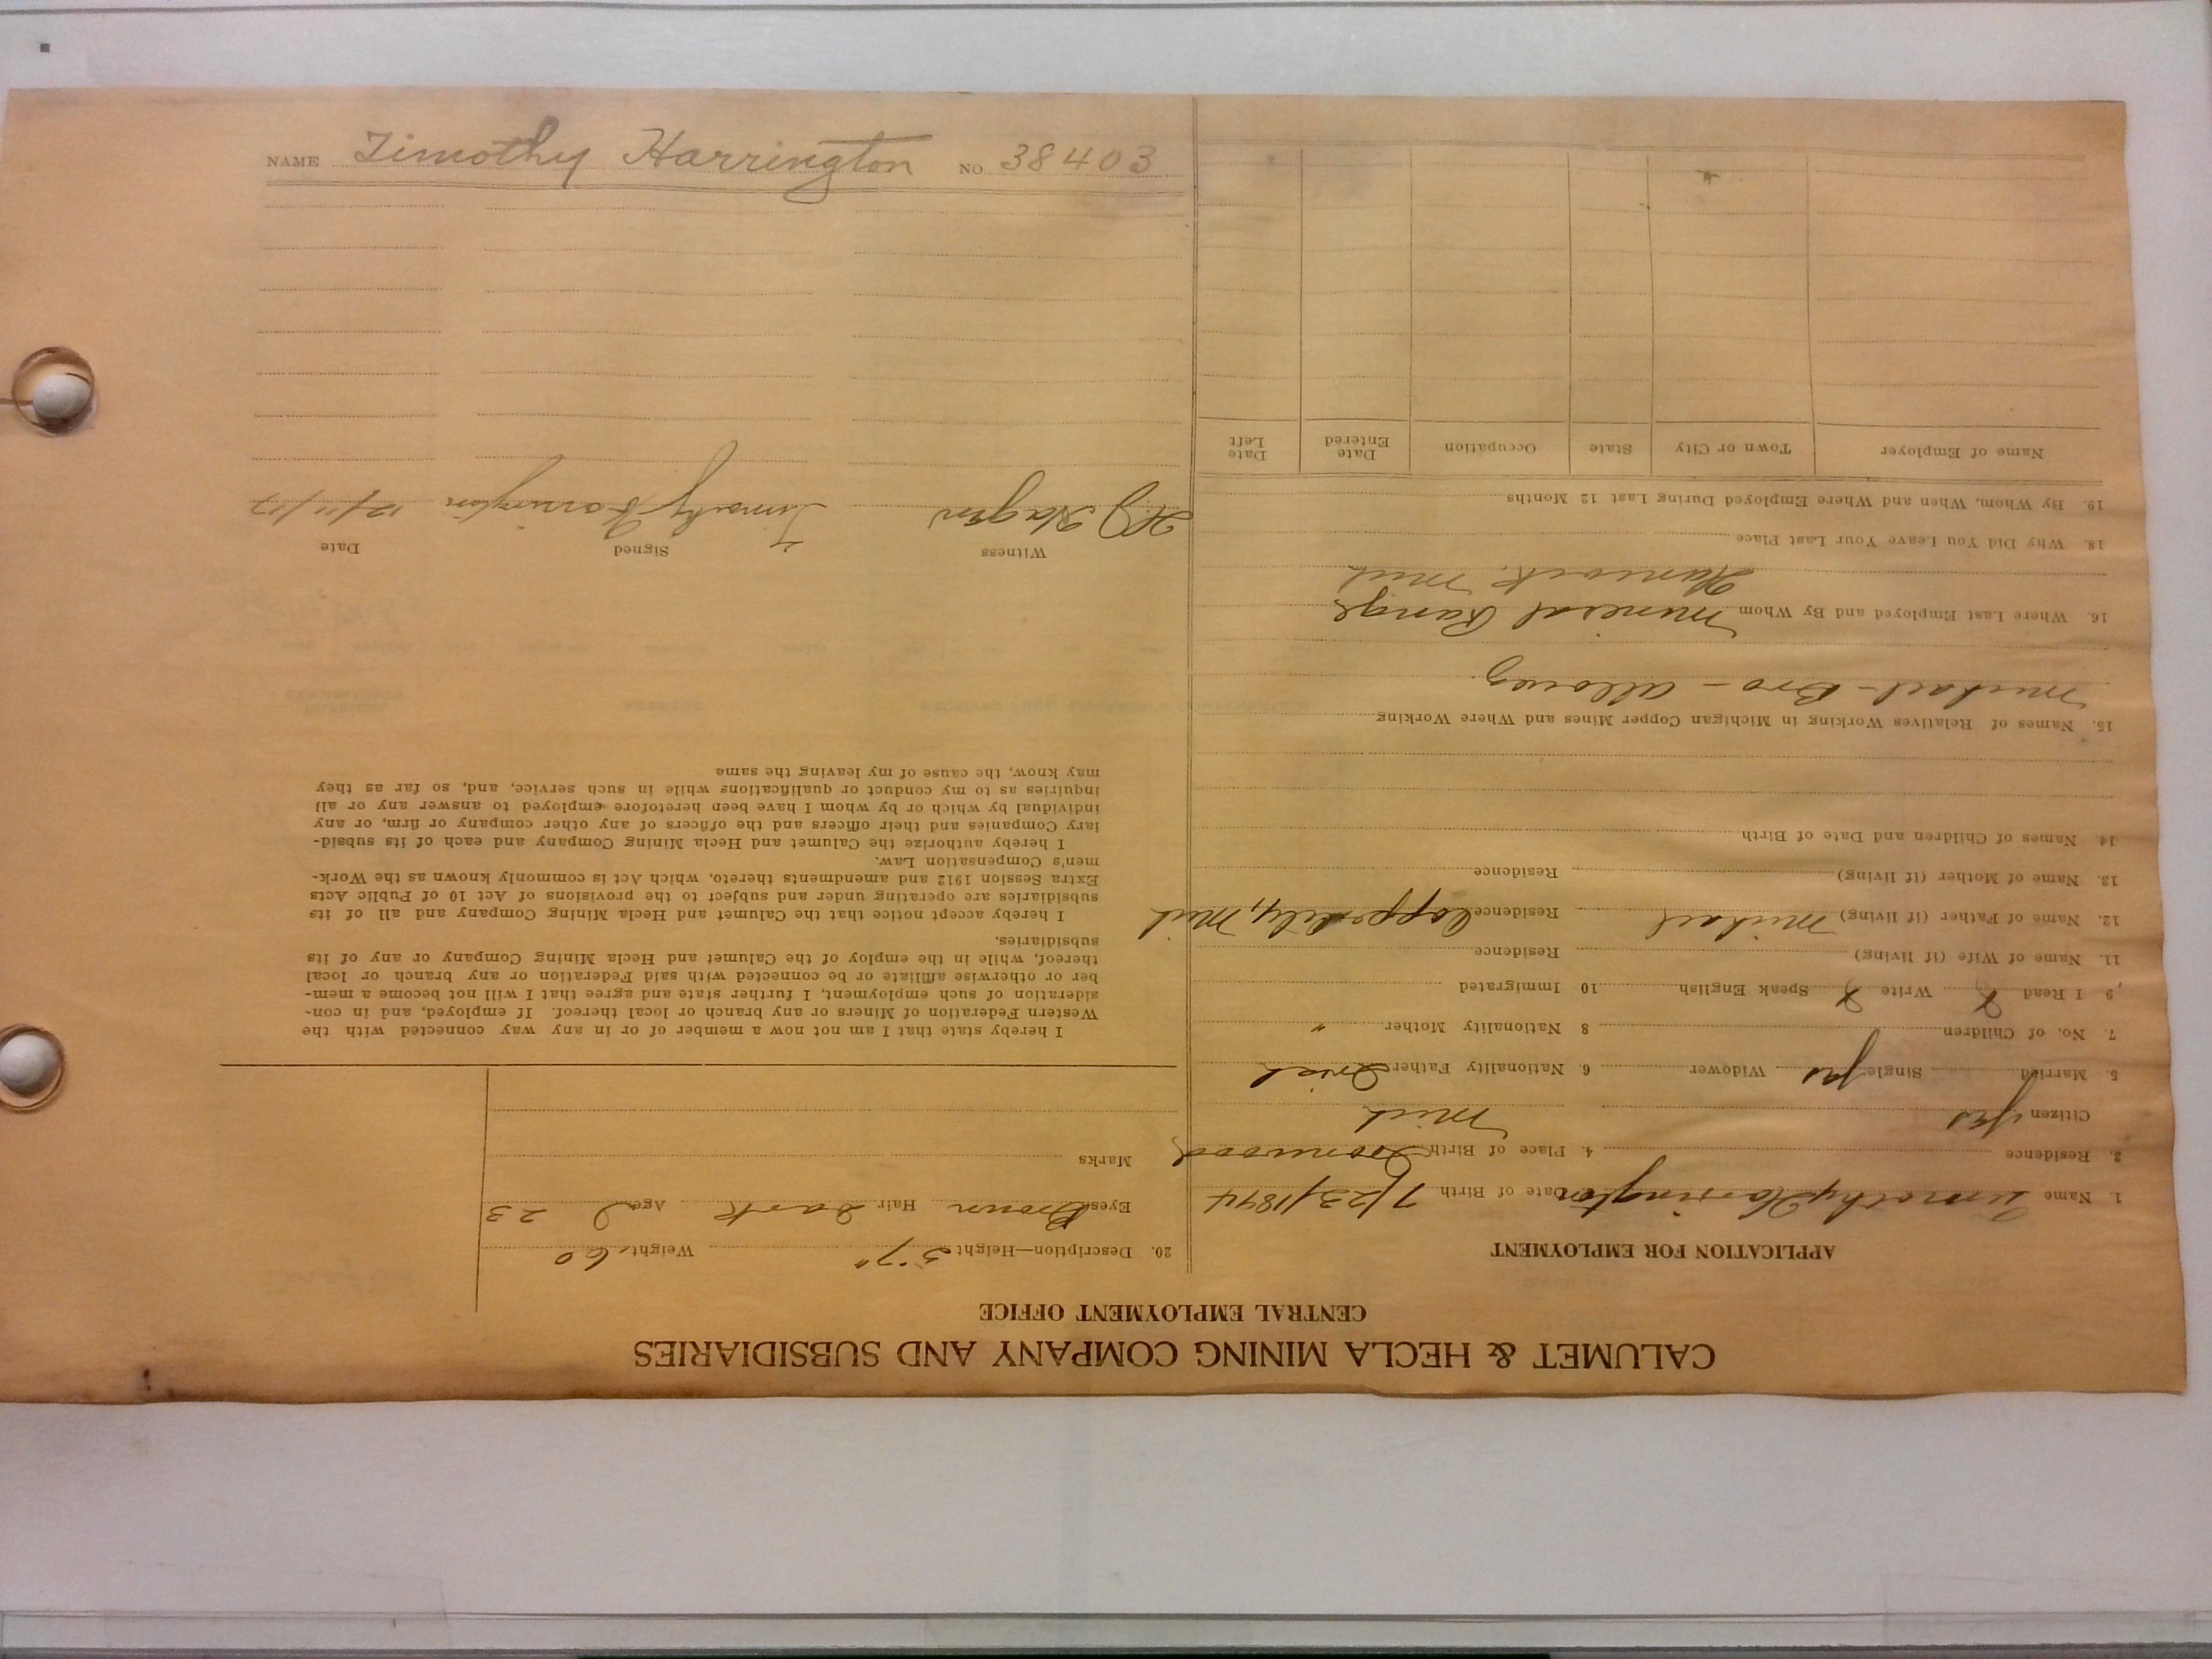 CALUMET & HECLA MINING COMPANY AND SUBSIDIARIES
CENTRAL EMPLOYMENT OFFICE
APPLICATION FOR EMPLOYMENT
1. Name Timothy Harrington Date of Birth 7/23/1894
2. Residence 4. Place of Birth Ironwood
Citizen yes Mich
5. Married Single yes Widower 6. Nationality Father Irish
7. No. of Children 8 Nationality Mother "
9 I Read Write Speak English 10 Immigrated
11. Name of Wife (if living) Residence
12. Name of Father (if living) Michael Residence Copper City, Mich
13. Name of Mother (if living) Residence
14. Names of Children and Date of Birth
15. Names of Relatives Working in Michigan Copper Mines and Where Working
Michael - Bro - Allouez
16. Where Last Employed and By Whom Mineral Range
Hancock, Mich
18. Why Did You Leave Your Last Place
19. By Whom, When and Where Employed During Last 12 Months
Name of Employer Town or City State Occupation Date Entered Date Left
20. Description—Height 5'7" Weight 160
Eyes Brown Hair Dark Age 23
Marks
I hereby state that I am not now a member of or in any way connected with the
Western Federation of Miners or any branch or local thereof. If employed, and in con-
sideration of such employment, I further state and agree that I will not become a mem-
ber or otherwise affiliate or be connected with said Federation or any branch or local
thereof, while in the employ of the Calumet and Hecla Mining Company or any of its
subsidiaries.
I hereby accept notice that the Calumet and Hecla Mining Company and all of its
subsidiaries are operating under and subject to the provisions of Act 10 of Public Acts
Extra Session 1912 and amendments thereto, which Act is commonly known as the Work-
men's Compensation Law.
I hereby authorize the Calumet and Hecla Mining Company and each of its subsid-
iary Companies and their officers and the officers of any other company or firm, or any
individual by which or by whom I have been heretofore employed to answer any or all
inquiries as to my conduct or qualifications while in such service, and, so far as they
may know, the cause of my leaving the same
Witness Signed Date
Hagen Timothy Harrington 12/11/17
NAME Timothy Harrington NO. 38403